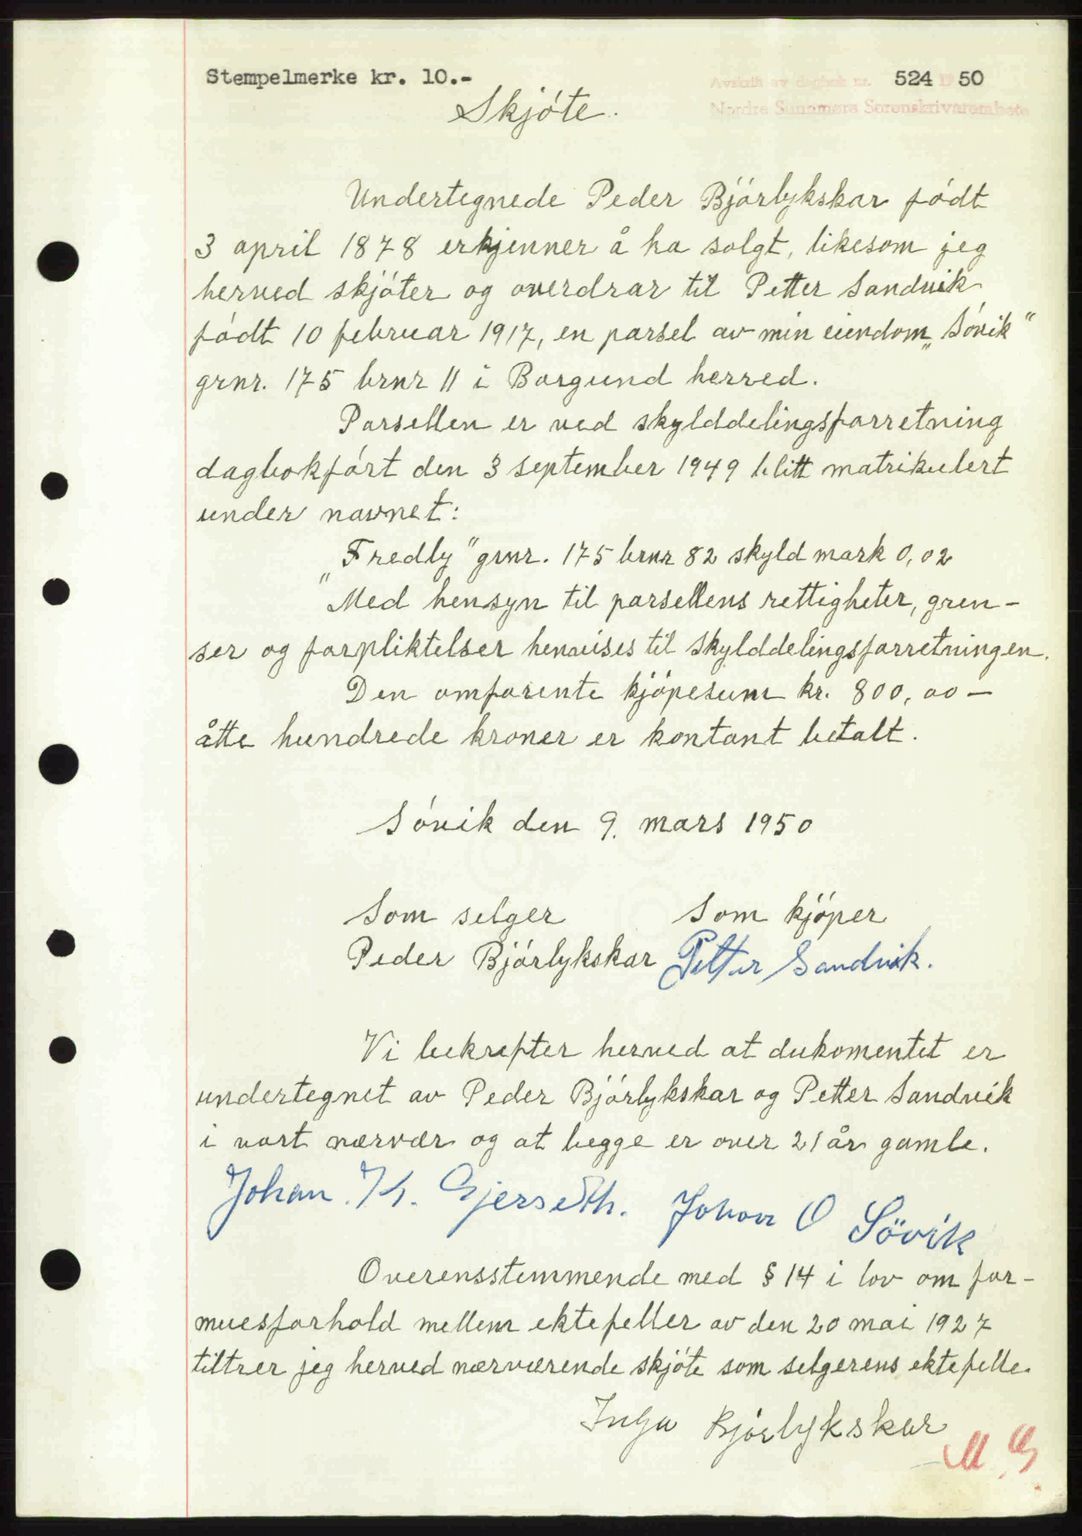 Stempelmerke kr. 10.-
Avskrift av dagbok nr. 524 19 50
Nordre Sunnmøre Sorenskriverembete
Skjóte.
Undertegnede Peder Bjórlykskar fódt
3 april 1878 erkjenner å ha solgt, likesom jeg
herved skjóter og overdrar til Petter Sandvik
fódt 10 februar 1917, en parsel av min eiendom „Sóvik“
grnr. 175 brnr 11 i Borgund herred.
Parsellen er ved skylddelingsforretning
dagbokfórt den 3 september 1949 blitt matrikulert
under navnet:
„Fredly“ grnr. 175 brnr 82 skyld mark 0,02
Med hensyn til parsellens rettigheter, gren-
ser og forpliktelser henvises til skylddelingsforretningen.
Den omforente kjópesum kr. 800,00 —
åtte hundrede kroner er kontant betalt.
Sóvik den 9. mars 1950
Som selger Som kjóper
Peder Bjórlykskar Petter Sandvik.
Vi bekrefter herved at dokumentet er
undertegnet av Peder Bjórlykskar og Petter Sandvik
i vort nærvær og at begge er over 21 år gamle.
Johan. K. Gjerseth. Johan O Sövik
Overensstemmende med § 14 i lov om for-
muesforhold mellem ektefeller av den 20 mai 1927
tiltrer jeg herved nærværende skjóte som selgerens ektefelle.
Inga Bjórlykskar
M G